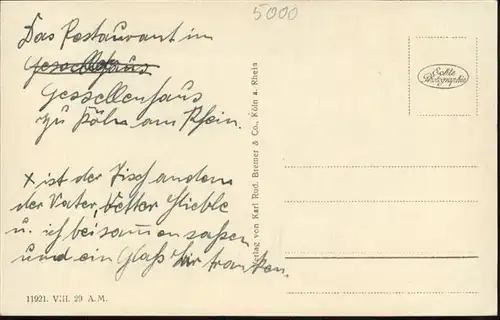 5000
Das Restaurant im
Gesellehaus
Gessellenhaus
zu Köln am Rhein.
x ist der Tisch an dem
der Vater, Vetter Stieble
u. ich beisamen saßen
und ein Glaß Bier tranken.
Verlag von Karl Rud. Bremer & Co., Köln a. Rhein
Echte Photographie
11921. VIII. 29 A.M.